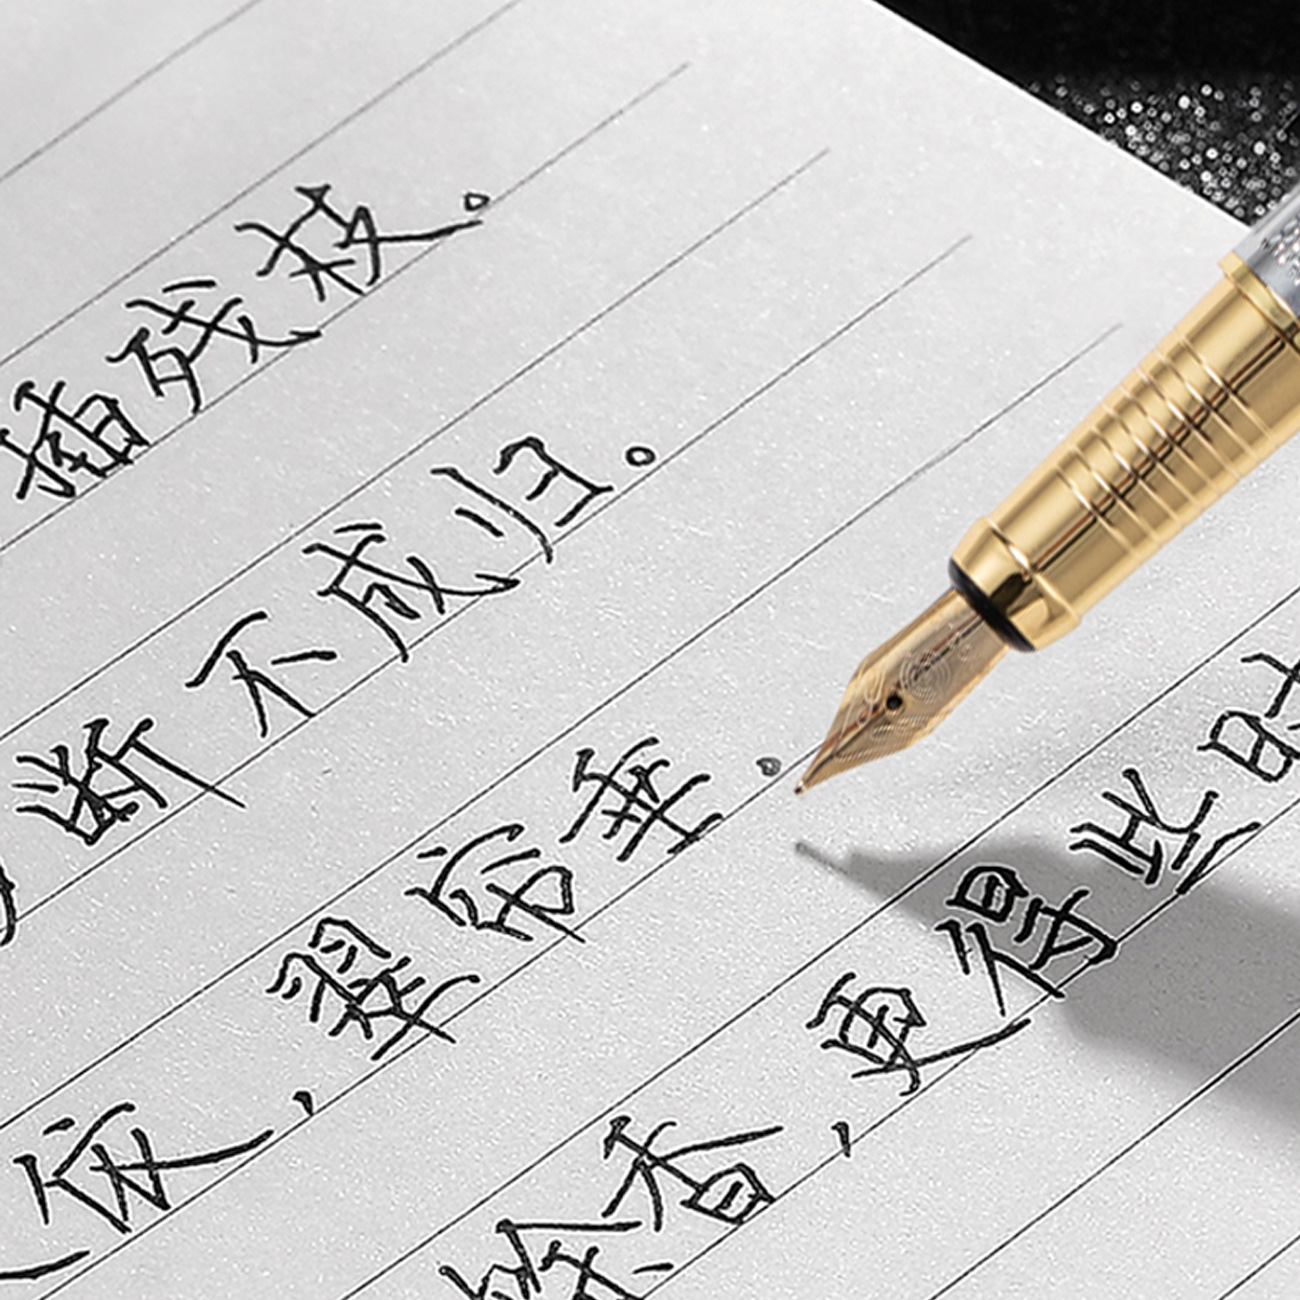 插残枝。
断不成归。
依,翠帘垂。
余香,更得些时